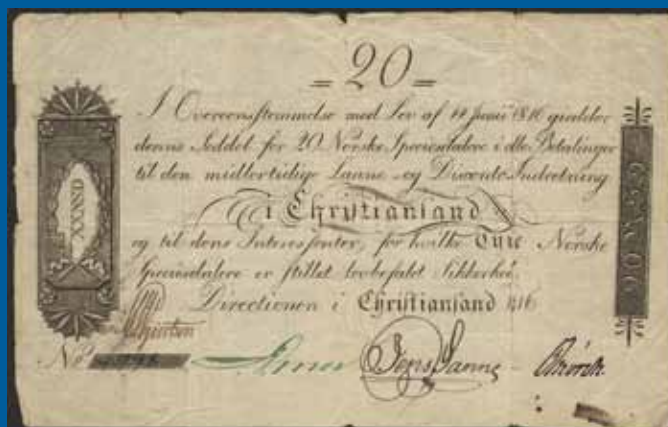 = 20 =
I Overeensstemmelse med Lov af 14 Junii 1816 gielder
denne Seddel for 20 Norske Speciesdalere i alle Betalinger
til den midlertidige Laane- og Disconto-Indretning
i Christiansand
og til dens Interessenter, for hvilke Tyve Norske
Speciesdalere er stillet lovbefalet Sikkerhed.
Directionen i Christiansand 1816
XXAND
No